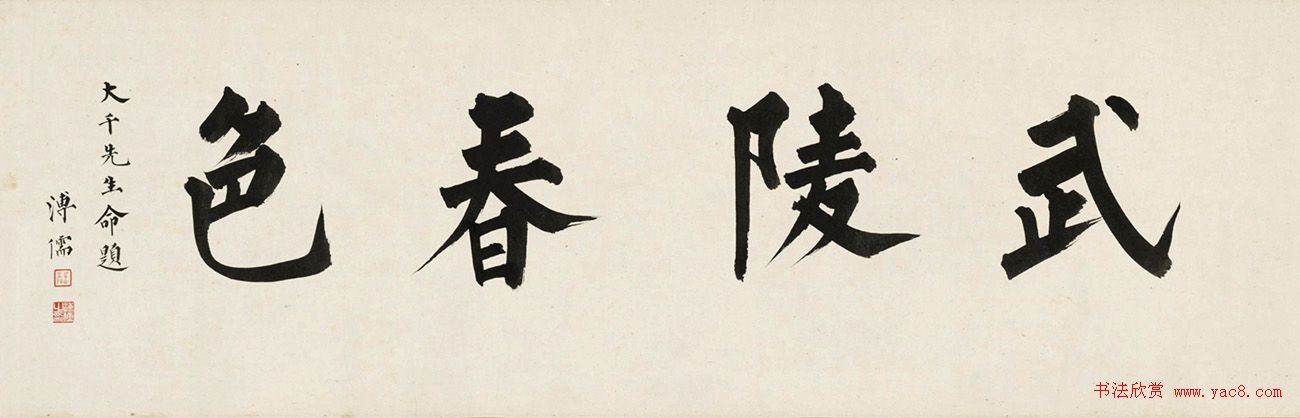 武陵春色
大千先生命題
溥儒
书法欣赏 www.yac8.com